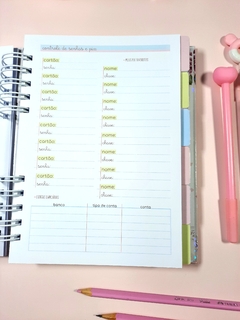 controle de senhas e pix
cartão: nome:
senha: chave:
cartão: nome:
senha: chave:
cartão: nome:
senha: chave:
cartão: nome:
senha: chave:
cartão: nome:
senha: chave:
cartão: nome:
senha: chave:
cartão: nome:
senha: chave:
banco tipo de conta conta